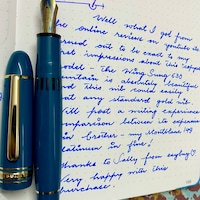 Well what I got from
the online reviews on youtube
turned out to be exact to my
first impressions about this
model - the Wing Sung 630
fountain is absolutely beautiful
and this nib could easily
at any standard gold nib.
Will post a writing experience
comparison between its
in brother - my Montblanc 149
Platinum in fine!
Thanks to Sally from
Very happy with this
purchase!